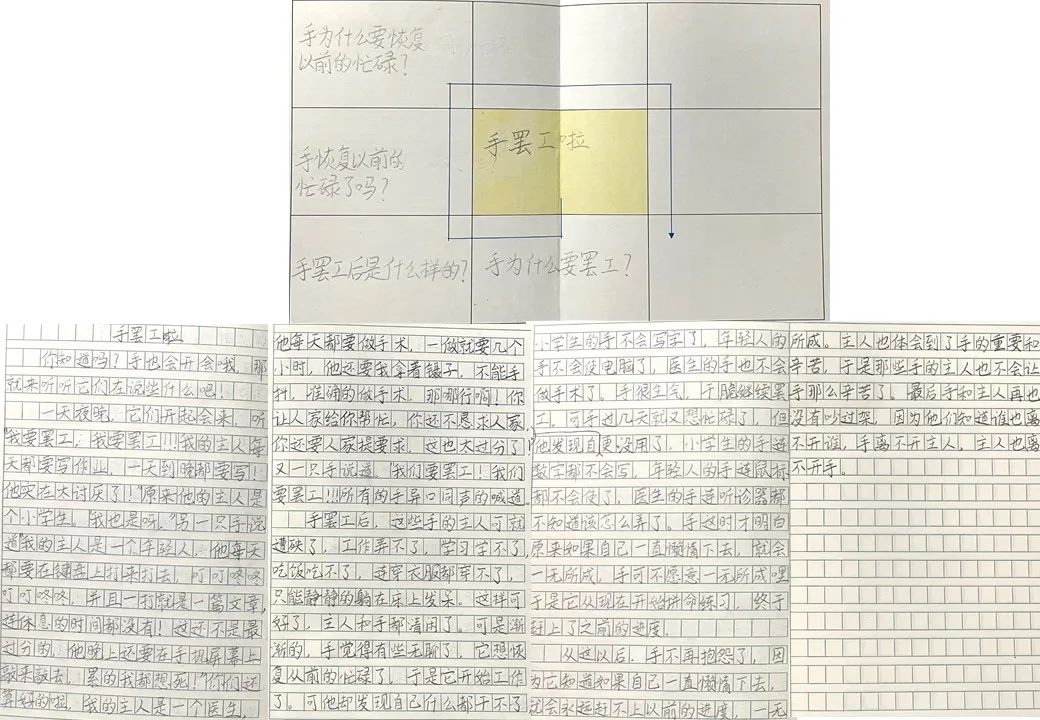 手为什么要恢复
以前的忙碌？
手罢工啦
手恢复以前的
忙碌了吗？
手罢工后是什么样的？
手为什么要罢工？
手罢工啦
你知道吗？手也会开会哦，那
就来听听它们在说些什么吧！
一天夜晚，它们开起会来，听
“我要罢工，我要罢工!!!我的主人每
天都要写作业，一天到晚都要写！
他实在太讨厌了！”原来他的主人是
个小学生。“我也是呀，”另一只手说
道“我的主人是一个年轻人，他每天
都要在键盘上打来打去，叮叮咚咚
叮叮咚咚，并且一打就是一篇文章，
连休息的时间都没有！这还不是最
过分的，他晚上还要在手机屏幕上
敲来敲去，累的我都想死！”“你们还
算好的啦，我的主人是一个医生，
他每天都要做手术，一做就要几个
小时，他还要我拿着镊子，不能手
抖，准确的做手术，那哪行啊！你
让人家给你帮忙，你还不恳求人家，
你还要人家提要求，这也太过分了！
又一只手说道“我们要罢工！我们
要罢工!!!所有的手异口同声的喊道。
手罢工后，这些手的主人可就
遭殃了，工作弄不了，学习学不了，
吃饭吃不了，连穿衣服都穿不了，
只能静静的躺在床上发呆。这样可
好了，主人和手都清闲了。可是渐
渐的，手觉得有些无聊了，它想恢
复从前的忙碌了，于是它开始工作
了。可他却发现自己什么都干不了
小学生的手不会写字了，年轻人的
手不会使电脑了，医生的手也不会
做手术了。手很生气，干脆继续罢
工。可手过几天就又想忙碌了，但
他发现自更没用了，小学生的手连
数字都不会写，年轻人的手连鼠标
都不会使了，医生的手连听诊器都
不知道该怎么弄了。手这时才明白
原来如果自己一直懒惰下去，就会
一无所成，手可不愿意一无所成哩
于是它从现在开始拼命练习，终于
赶上了之前的进度。
从这以后，手不再抱怨了，因
为它知道如果自己一直懒惰下去，
就会永远赶不上以前的进度，一无
所成。主人也体会到了手的重要和
辛苦，于是那些手的主人也不会让
手那么辛苦了。最后手和主人再也
没有吵过架，因为他们知道谁也离
不开谁，手离不开主人，主人也离
不开手。